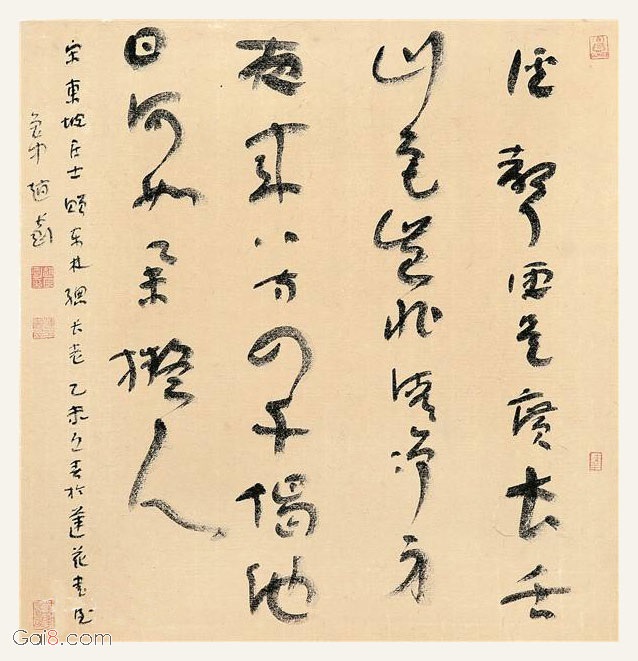 溪聲便是廣長舌
山色豈非清淨身
夜來八万四千偈他
日何如擬人
宋東坡居士贈东林總长老乙未立春於蓮花書屋
趙
Gai8.com